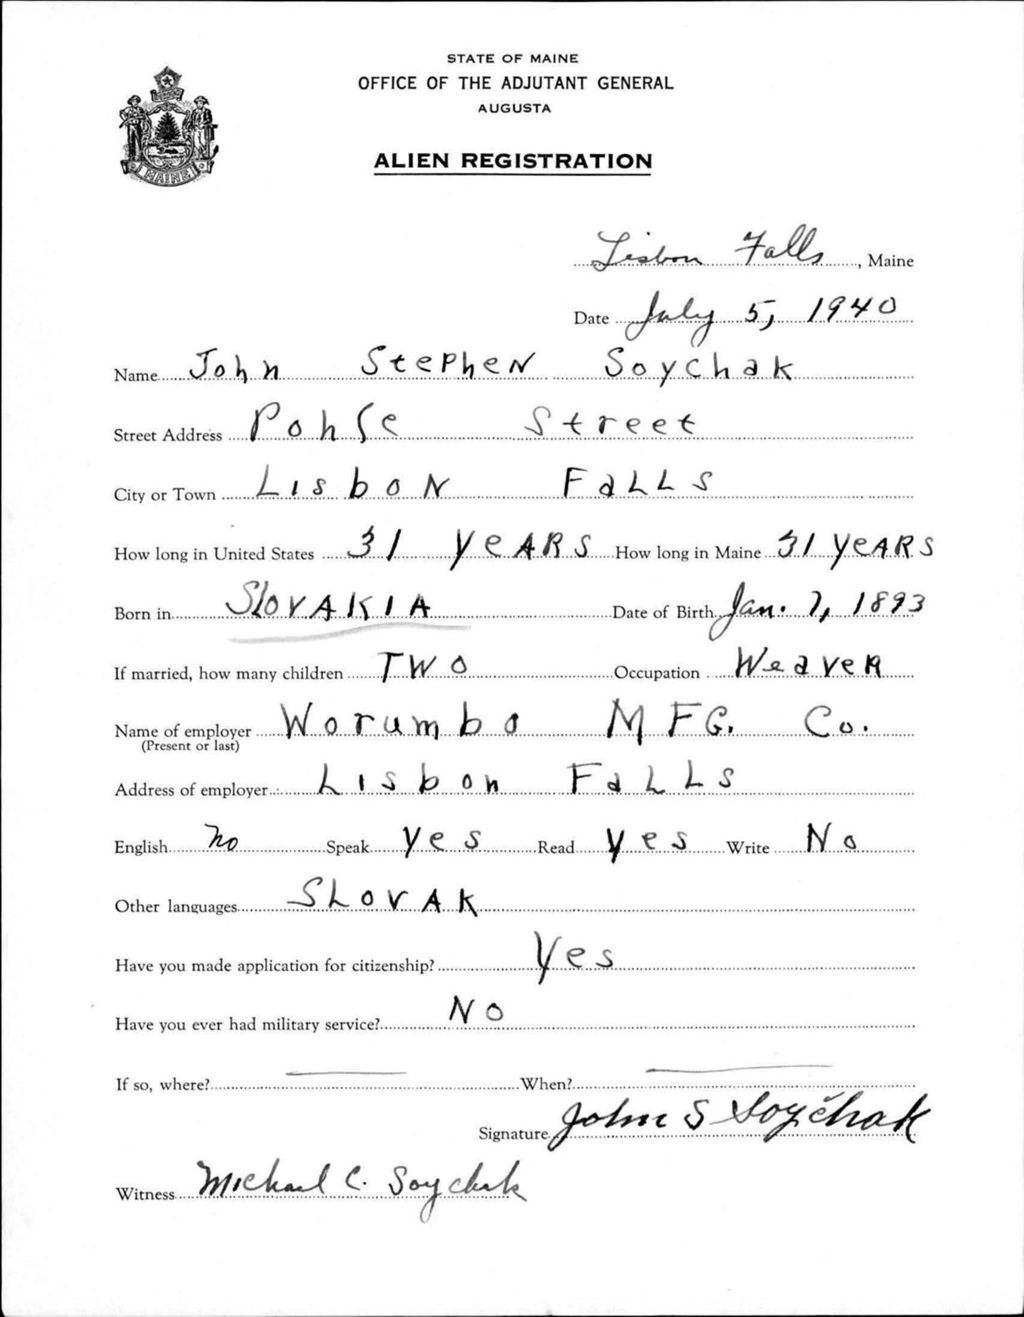 STATE OF MAINE
OFFICE OF THE ADJUTANT GENERAL
AUGUSTA
ALIEN REGISTRATION
MAINE
Lisbon Falls, Maine
Date July 5, 1940
Name John Stephen Soychak
Street Address Street
City or Town Lisbon Falls
How long in United States 31 years How long in Maine 31 years
Born in Slovakia Date of Birth Jan. 7, 1893
If married, how many children Two Occupation Weaver
Name of employer Worumbo MFG. Co.
(Present or last)
Address of employer Lisbon Falls
English no Speak yes Read yes Write No
Other languages SLOVAK
Have you made application for citizenship? Yes
Have you ever had military service? No
If so, where? When?
Signature John S Soychak
Witness Michael C. Soychak